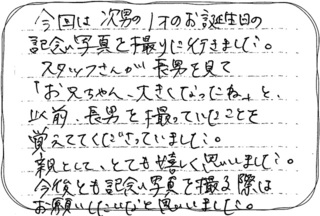 今回は次男の1才のお誕生日の
記念写真を撮りに行きました。
スタッフさんが長男を見て
「お兄ちゃん、大きくなったね」と、
以前、長男を撮っていたことを
覚えててくださっていました。
親として、とても嬉しく思いました。
今後とも記念写真を撮る際は
お願いしたいなと思いました。